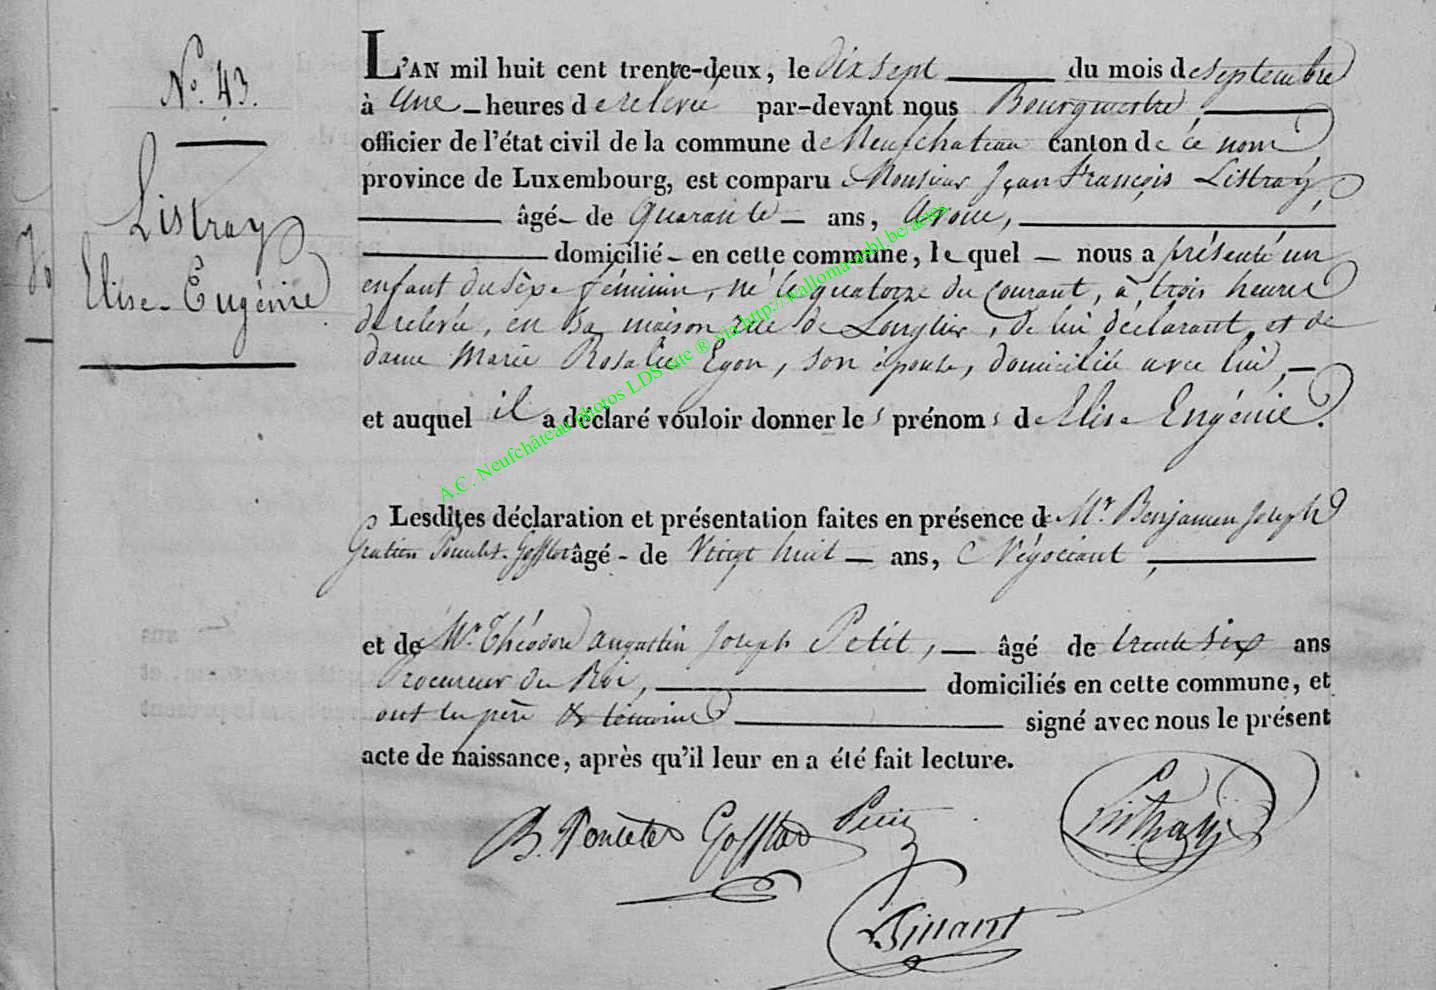 No. 43.
Listray
Elise-Eugénie
L'AN mil huit cent trente-deux, le dix sept du mois de septembre
à Une heures de relevée par-devant nous Bourgmestre,
officier de l'état civil de la commune de Neufchateau canton de ce nom
province de Luxembourg, est comparu Monsieur Jean François Listray,
âgé de Quarante ans, Avoué,
domicilié en cette commune, lequel nous a présenté un
enfant du sèxe féminin, né le quatorze du Courant, à trois heures
de relevée, en sa maison rue de Longlier, de lui déclarant, et de
dame Marie Rosalie Egon, son épouse, domiciliée avec lui,
et auquel il a déclaré vouloir donner les prénoms de Elise Eugénie.
Lesdites déclaration et présentation faites en présence de Mr. Benjamin Joseph
Gofflot âgé de Vingt huit ans, Négociant,
et de Mr. Théodore Augustin Joseph Petit, âgé de trente six ans
Procureur du Roi, domiciliés en cette commune, et
ont les père & témoins signé avec nous le présent
acte de naissance, après qu'il leur en a été fait lecture.
B. Poncelet Gofflot Petit
Listray
Dinant
A.C. Neufchâteau photos LDS site ® via http://wallonia.asbl.be/actes